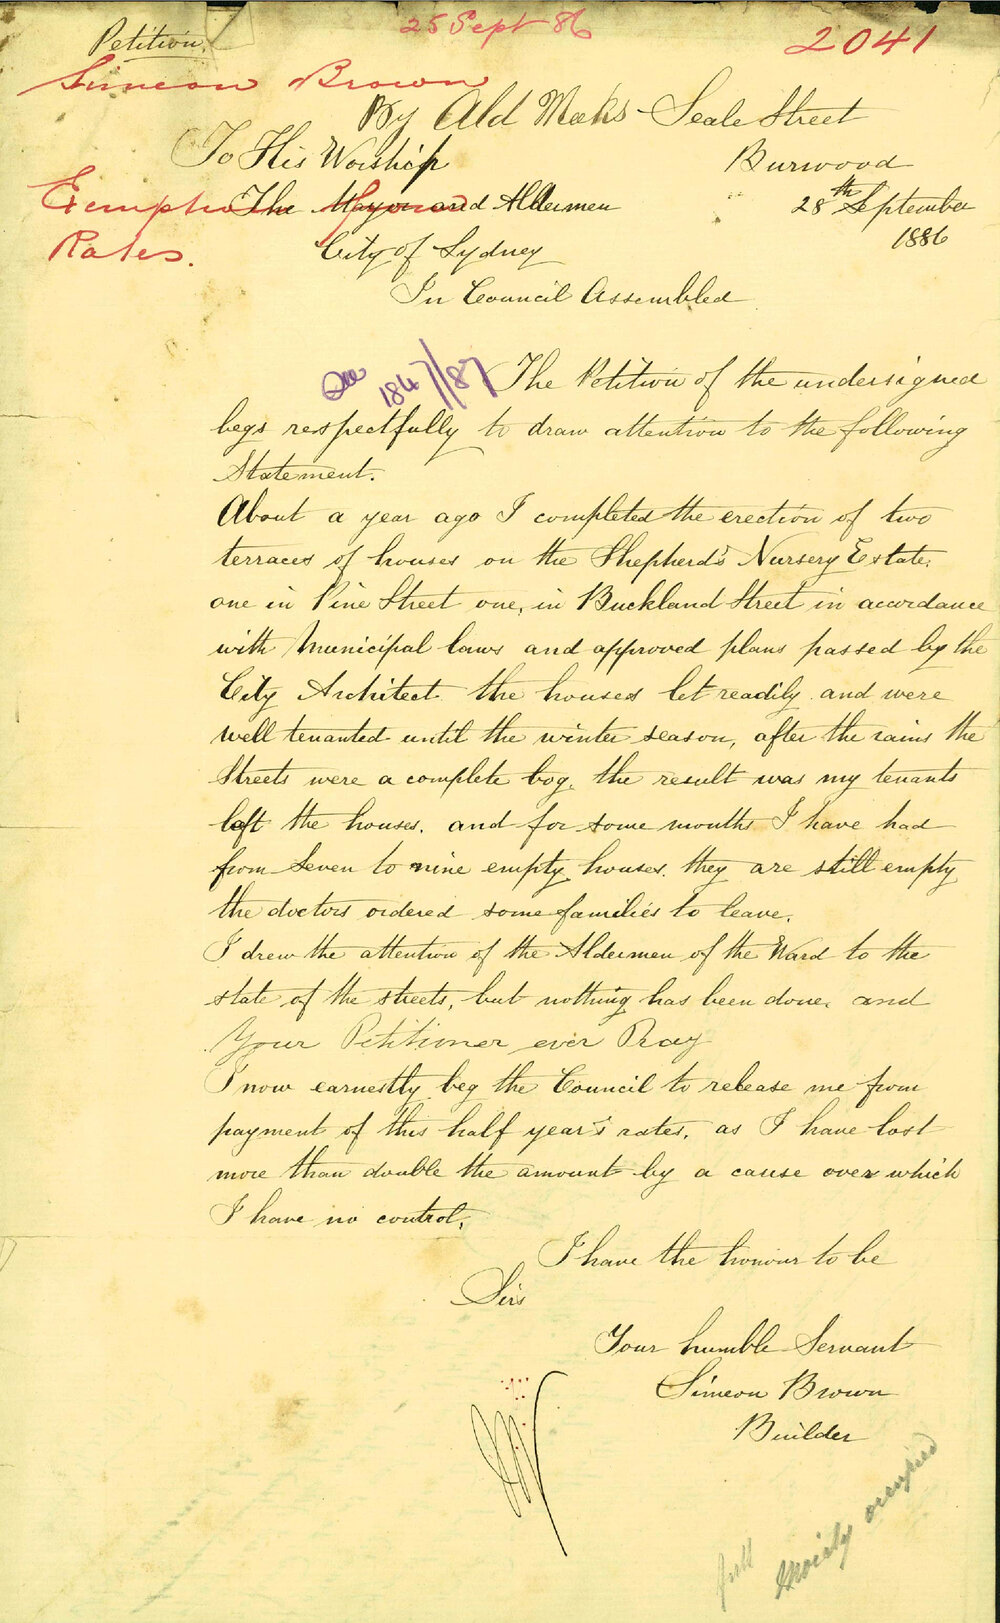 Petition.
25 Sept 86
2041
Simeon Brown
By Ald Meeks
Seale Street
To His Worship
Burwood
Exemption from
The Mayor and Aldermen
28th September
Rates.
City of Sydney
1886
In Council Assembled
1847/87
The Petition of the undersigned
begs respectfully to draw attention to the following
Statement.
About a year ago I completed the erection of two
terraces of houses on the Shepherd's Nursery Estate.
one in Pine Street one, in Buckland Street in accordance
with Municipal laws and approved plans passed by the
City Architect. the houses let readily and were
well tenanted until the winter season, after the rains the
Streets were a complete bog. the result was my tenants
left the houses. and for some months I have had
from seven to nine empty houses. they are still empty
the doctors ordered some families to leave.
I drew the attention of the Aldermen of the Ward to the
state of the streets, but nothing has been done. and
Your Petitioner ever Pray
I now earnestly beg the Council to release me from
payment of this half year's rates, as I have lost
more than double the amount by a cause over which
I have no control.
I have the honour to be
Sirs
Your humble Servant
Simeon Brown
Builder
occupied